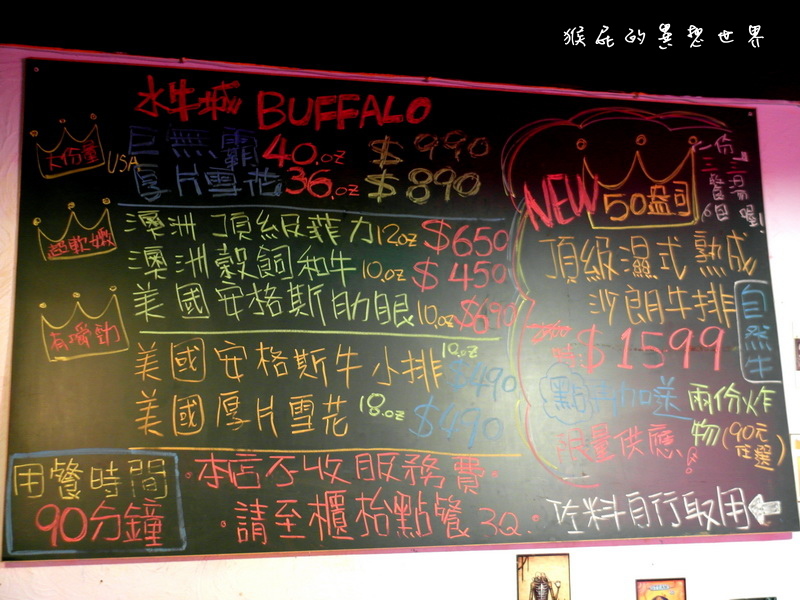 猴屁的異想世界
水牛城 BUFFALO
大份量
USA
巨無霸 40.oz $990
厚片雪花 36.oz $890
超軟嫩
澳洲頂級菲力 12oz $650
澳洲穀飼和牛 10.oz $450
美國安格斯肋眼 10.oz $690
有嚼勁
美國安格斯牛小排 10.oz $490
美國厚片雪花 18.oz $490
用餐時間
90分鐘
·本店不收服務費·
·請至櫃枱點餐 3Q.
NEW 50盎司
一份
三
個喔!
頂級濕式熟成
沙朗牛排
自然牛
$1599
點再加送 兩份炸
物(90元
任選)
限量供應!
佐料自行取用